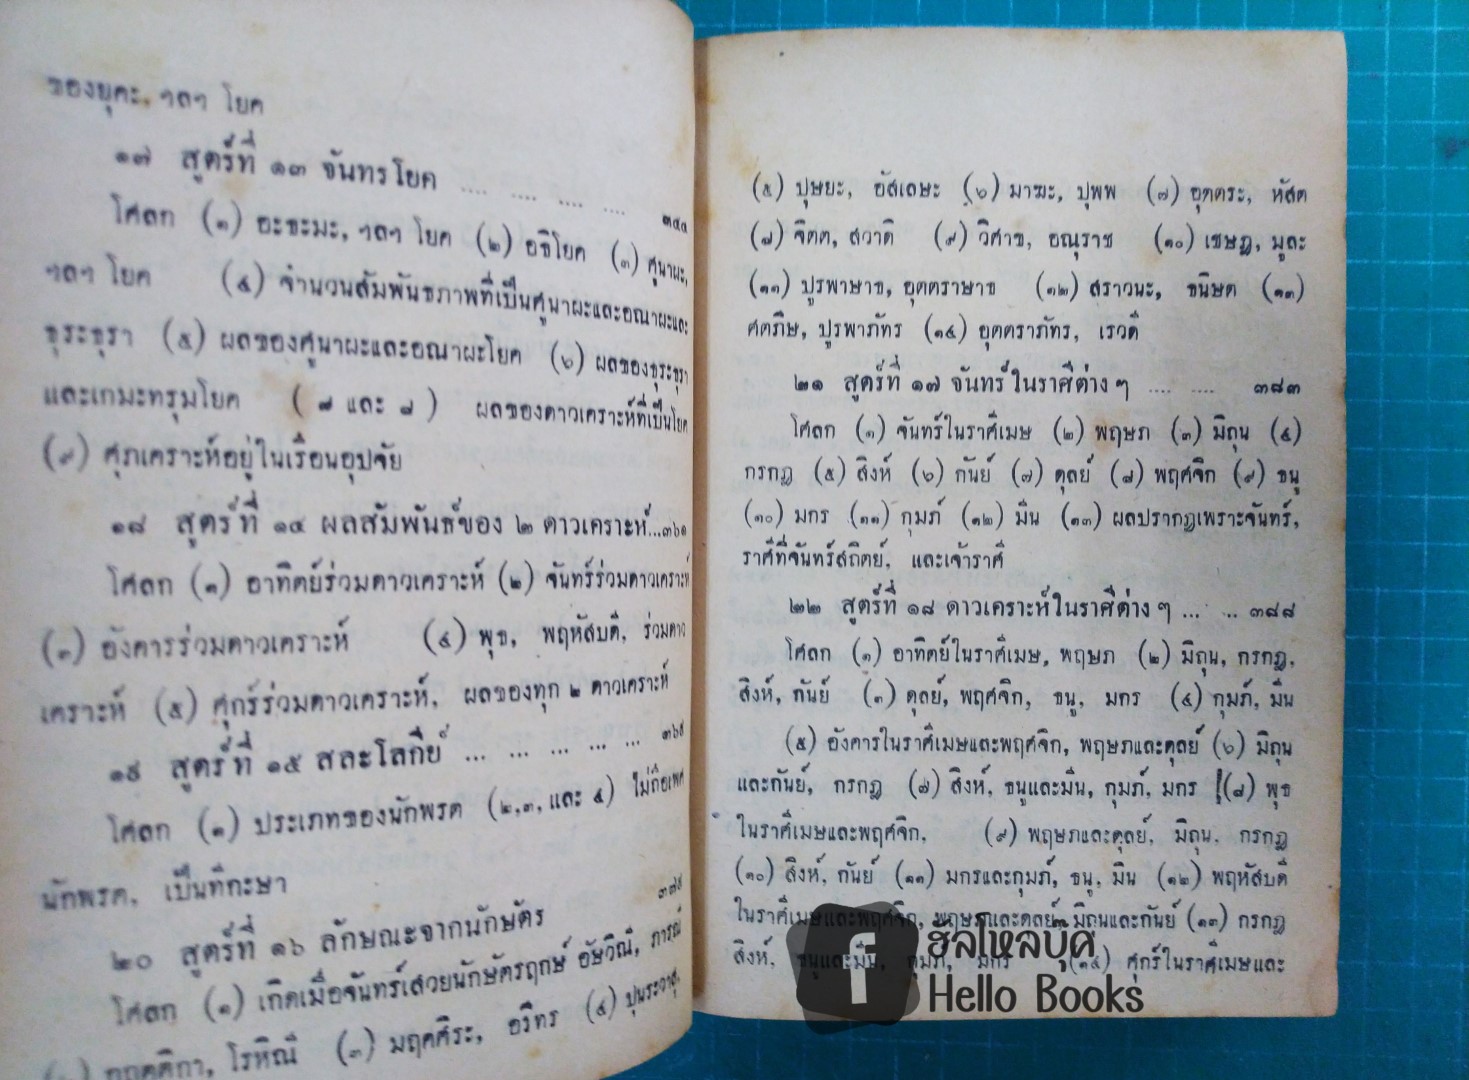 ของยุคะ, ฯลฯ โยค
๑๗ สูตร์ที่ ๑๓ จันทรโยค .... .... .... .... ๓๕๔
โศลก (๑) อะธะมะ, ฯลฯ โยค (๒) อธิโยค (๓) ศูนาผะ,
ฯลฯ โยค (๔) จำนวนสัมพันธภาพที่เป็นศูนาผะและอณาผะและ
ธุระธุรา (๕) ผลของศูนาผะและอณาผะโยค (๖) ผลของธุระธุรา
และเกมะทรุมโยค (๗ และ ๘) ผลของดาวเคราะห์ที่เป็นโยค
(๙) ศุภเคราะห์อยู่ในเรือนอุปจัย
๑๘ สูตร์ที่ ๑๔ ผลสัมพันธ์ของ ๒ ดาวเคราะห์...๓๖๑
โศลก (๑) อาทิตย์ร่วมดาวเคราะห์ (๒) จันทร์ร่วมดาวเคราะห์
(๓) อังคารร่วมดาวเคราะห์ (๔) พุธ, พฤหัสบดี, ร่วมดาว
เคราะห์ (๕) ศุกร์ร่วมดาวเคราะห์, ผลของทุก ๒ ดาวเคราะห์
๑๙ สูตร์ที่ ๑๕ สละโลกีย์ ... ... ... ...
โศลก (๑) ประเภทของนักพรต (๒,๓, และ ๔) ไม่ถือเพศ
นักพรต, เป็นทีกะษา
๒๐ สูตร์ที่ ๑๖ ลักษณะจากนักษัตร
โศลก (๑) เกิดเมื่อจันทร์เสวยนักษัตรฤกษ์ อัษวิณี, ภารณี
กฤตติกา, โรหิณี (๓) มฤคศิระ, อริทร (๔) ปุนระวาสุ,
(๕) ปุษยะ, อัสเลษะ (๖) มาฆะ, ปุพพ (๗) อุตตระ, หัสต
(๘) จิตต, สวาดิ (๙) วิศาข, อณุราช (๑๐) เชษฏ, มูละ
(๑๑) ปูรพาษาธ, อุตตราษาธ (๑๒) สราวนะ, ธนิษต (๑๓)
ศตภิษ, ปูรพาภัทร (๑๔) อุตตราภัทร, เรวดี
๒๑ สูตร์ที่ ๑๗ จันทร์ในราศีต่าง ๆ .... .... ๓๘๓
โศลก (๑) จันทร์ในราศีเมษ (๒) พฤษภ (๓) มิถุน (๔)
กรกฎ (๕) สิงห์ (๖) กันย์ (๗) ตุลย์ (๘) พฤศจิก (๙) ธนู
(๑๐) มกร (๑๑) กุมภ์ (๑๒) มีน (๑๓) ผลปรากฏเพราะจันทร์,
ราศีที่จันทร์สถิตย์, และเจ้าราศี
๒๒ สูตร์ที่ ๑๘ ดาวเคราะห์ในราศีต่าง ๆ ... .. ๓๘๘
โศลก (๑) อาทิตย์ในราศีเมษ, พฤษภ (๒) มิถุน, กรกฎ,
สิงห์, กันย์ (๓) ตุลย์, พฤศจิก, ธนู, มกร (๔) กุมภ์, มีน
(๕) อังคารในราศีเมษและพฤศจิก, พฤษภและตุลย์ (๖) มิถุน
และกันย์, กรกฎ (๗) สิงห์, ธนูและมีน, กุมภ์, มกร (๘) พุธ
ในราศีเมษและพฤศจิก, (๙) พฤษภและตุลย์, มิถุน, กรกฎ
(๑๐) สิงห์, กันย์ (๑๑) มกรและกุมภ์, ธนู, มีน (๑๒) พฤหัสบดี
ในราศีเมษและพฤศจิก, พฤษภและตุลย์, มิถุนและกันย์ (๑๓) กรกฎ
สิงห์, ธนูและมีน, กุมภ์, มกร (๑๔) ศุกร์ในราศีเมษและ
f ฮัลโหลบุ๊ค
Hello Books